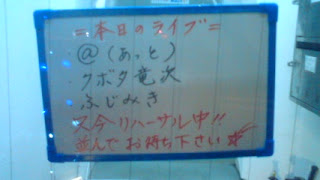 =本日のライブ=
@(あっと)
クボタ竜次
ふじみき
只今リハーサル中!!
並んでお待ち下さい☆